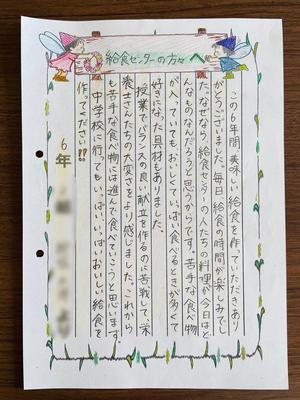 給食センターの方々へ
この6年間美味しい給食を作っていただきあり
がとうございました。毎日給食の時間が楽しみでし
た。なぜなら給食センターの人たちの料理が今日はど
んなものなんだろうと思うからです。苦手な食べ物
が入っていてもおいしくて、いっぱい食べるときが多くて
好きになった具材もありました。
授業でバランスの良い献立を作るのに苦戦して、栄
養士さんたちの大変さをより感じました。これから
も苦手な食べ物には進んで食べていこうと思います。
中学校に行ってもいっぱい、いっぱいおいしい給食を
作ってください!!
6年